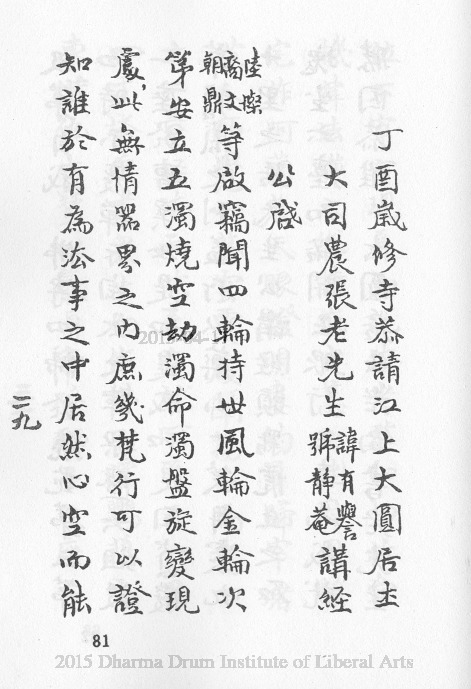 丁酉歲修寺恭請江上大圓居士
大司農張老先生諱有譽號静菴講經
公啓
陸燦喬文朝鼎等啟竊聞四輪持世風輪金輪次
第安立五濁燒空劫濁命濁盤旋變現
處此無情器界之内庶幾梵行可以證
知誰於有為法事之中居然心空而能
二九
81
2015-04-1
2015 Dharma Drum Institute of Liberal Arts